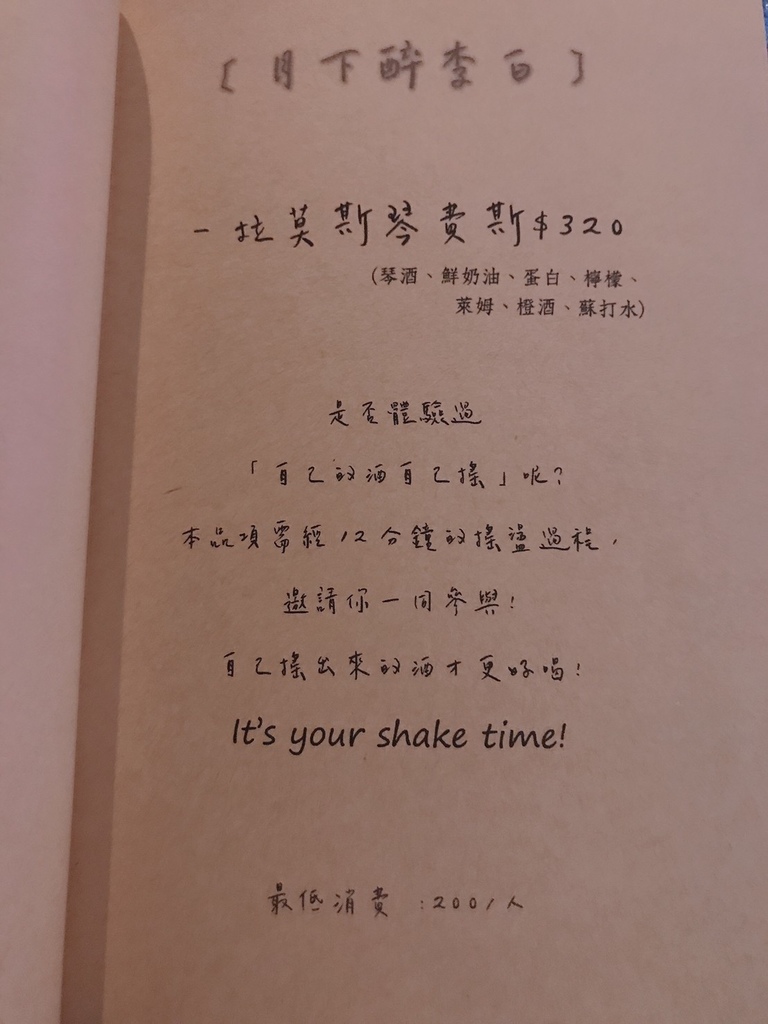 [月下醉李白]
-拉莫斯琴費斯$320
(琴酒、鮮奶油、蛋白、檸檬、
萊姆、橙酒、蘇打水)
是否體驗過
「自己的酒自己搖」呢?
本品項需經12分鐘的搖盪過程,
邀請你一同參與!
自己搖出來的酒才更好喝!
It's your shake time!
最低消費:200/人